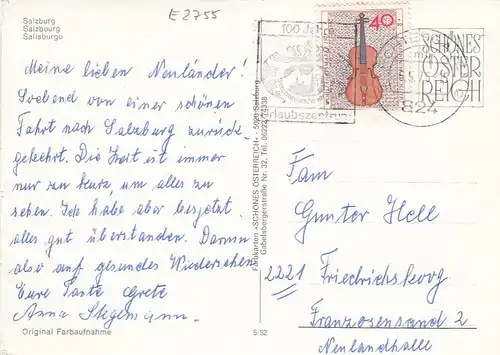 Salzburg
Salzbourg
Salisburgo
E 2755
Meine lieben Neuländer!
Soebend von einer schönen
Fahrt nach Salzburg zurück-
gekehrt. Die Zeit ist immer
nur zu kurz, um alles zu
sehen. Ich habe aber bis jetzt
alles gut überstanden. Darum
also auf gesundes Wiedersehen
Eure Tante Grete
Anna
Original Farbaufnahme
5/52
Farbkarten «SCHÖNES ÖSTERREICH» - 5020 Salzburg
Gabelsbergerstraße Nr. 32, Tel.
100 Ja
Urlaubszentrum
40
824
SCHÖNES
ÖSTER
REICH
Fam
Gunter Hell
2221 Friedrichskoog
Franzosensand 2
Neulandhalle